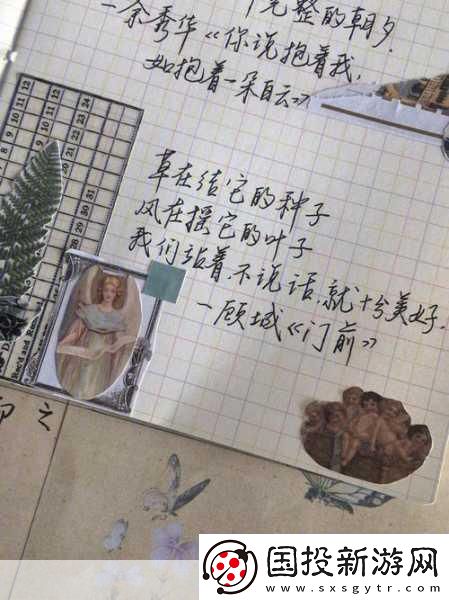 完整的朝夕.
—余秀华《你说抱着我,
如抱着一朵白云》
草在结它的种子
风在摇它的叶子
我们站着,不说话,就十分美好.
—顾城《门前》
8 9 10 11 12
20 21 22 23 24
Rec'd and
国投新游网
www.sxsgytr.com